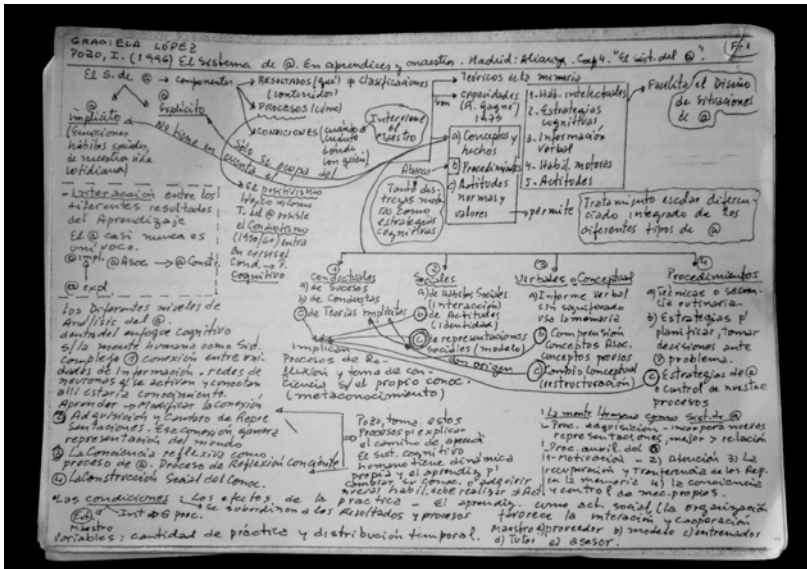 GRACIELA LÓPEZ
POZO, I. (1996) El Sistema de @. En aprendices y maestros. Madrid: Alianza. Cap 4. "El sist. del @".
F-1
El S. de @ → Componentes
RESULTADOS (qué) ⇒ Clasificaciones
(contenidos)
PROCESOS (cómo)
CONDICIONES (cuándo
cuánto
dónde
con quién)
@
implícito
(Emociones
hábitos sociales,
de nuestra vida
cotidiana)
@
Explícito
No tiene en cuenta el
Sólo se ocupa del
Interviene
el
Maestro
Teóricos de la memoria
Capacidades
(R. Gagné)
1975
son
1- Hab. intelectuales
2. Estrategias
cognitivas
3. Información
verbal
4- Habil. motoras
5- Actitudes
Facilita el Diseño
de Situaciones
de @
a) Conceptos y
hechos
b) Procedimientos
c) Actitudes
normas y
valores
Abarca
Tanto des-
trezas moto-
ras como
estrategias
cognitivas
permite
Tratamiento escolar diferen-
ciado integrado de los
diferentes tipos de @
- Interacción entre los
diferentes resultados
del Aprendizaje
El @ casi nunca es
unívoco.
@ impl.
@ Asoc → @ Constr.
@ expl
el positivismo
lógico
T. del @ posible
el Conductismo
entra
en crisis el
Cond → P.
Cognitivo
①
Conductuales
a) de Sucesos
b) de Conductas
c) de Teorías Implícitas
②
Sociales
a) de Hábitos Sociales
(interacción)
b) de Actitudes
(identidad)
c) de representaciones
sociales (modelo)
③
Verbales o Conceptual
a) Informe Verbal
sin significado
usa la memoria
b) Comprensión
Conceptos Asoc.
conceptos previos
c) Cambio Conceptual
(restructuración)
4
Procedimientos
a) Técnicas o secuen-
cia rutinaria
b) Estrategias p/
planificar, tomar
decisiones ante
problema.
c) Estrategias de @
o control de nuestros
procesos
dan origen
implican
Procesos de Re-
flexión y toma de con-
ciencia s/ el propio conoc.
(metaconocimiento)
Los Diferentes niveles de
Análisis del @.
dentro del enfoque cognitivo
s/ la mente humana como Sist.
complejo ① conexión entre uni-
dades de Información. redes de
neuronas q' se activan y conectan
allí estaría conocimiento.
Aprender → Modificar la conexión
② Adquisición y Cambio de Repre-
sentaciones. Esa conexión genera
representación del mundo
③ La Conciencia reflexiva como
proceso de @. Proceso de Reflexión consciente
④ La Construcción Social del Conoc.
Pozo, toma estos
Procesos p/ explicar
el camino de aprendi
El Sist. cognitivo
humano tiene dinámica
propia y el aprendiz p/
cambiar su conoc. o adquirir
nuevas habil. debe realizar
La mente Humana como Sist. de @
- Proc. adquisición - incorpora nuevas
representaciones, mejor > relación
- Proc. auxil. del @
1- Motivación - 2) Atención 3) La
recuperación y Tranferencia de las Rep.
en la memoria 4) la conciencia
y control de mec. propios.
• Las condiciones: Los efectos de la practica - El aprendiz. como act. social (la organización
Ext Int → @ proc. se subordinan a los Resultados y procesos favorece la interación y cooperación
Maestro
Variables: cantidad de práctica y distribución temporal. Maestro a) proveedor b) modelo c) entrenador
d) Tutor e) asesor.